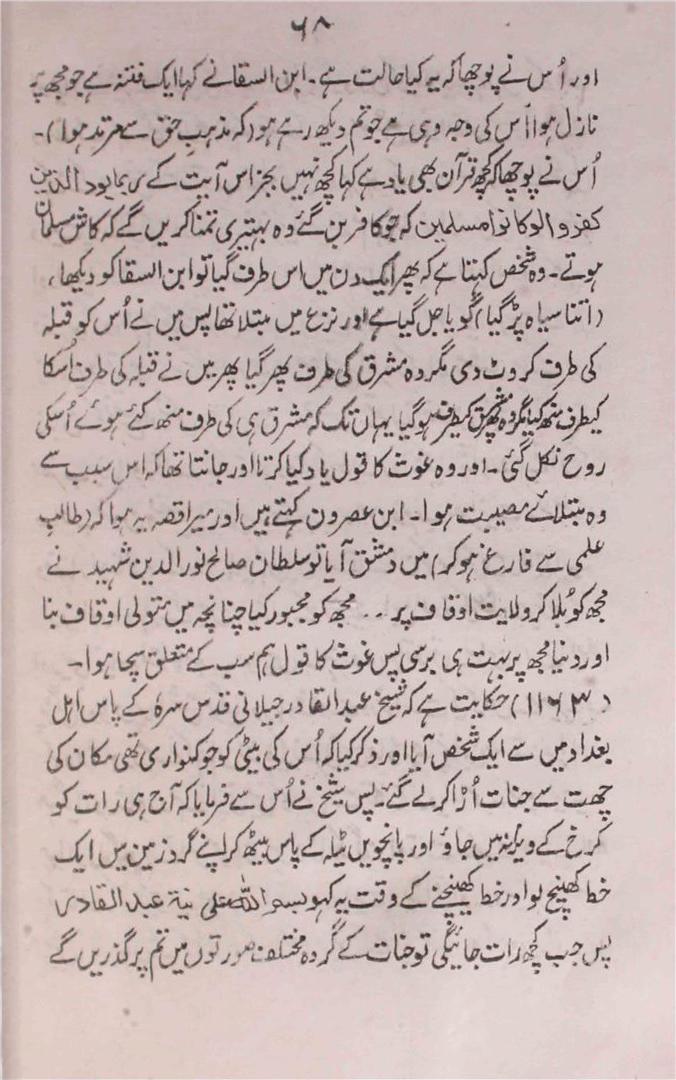 ۶۸
اور اُس نے پوچھا کہ یہ کیا حالت ہے۔ ابن السقانے کہا ایک فتنہ ہے جو مجھ پر
نازل ہوا اُس کی وجہ وہی ہے جو تم دیکھ رہے ہو (کہ مذہب حق سے مرتد ہوا)۔
اُس نے پوچھا کہ کچھ قرآن بھی یاد ہے کہا کچھ نہیں بجز اس آیت کے ربما یود الذین
کفروا لوکانوا مسلمین کہ جو کافر بن گئے وہ بہتیری تمنا کریں گے کہ کاش مسلمان
ہوتے۔ وہ شخص کہتا ہے کہ پھر ایک دن میں اس طرف گیا تو ابن السقا کو دیکھا،
(اتنا سیاہ پڑ گیا) گویا جل گیا ہے اور نزع میں مبتلا تھا پس میں نے اُس کو قبلہ
کی طرف کروٹ دی مگر وہ مشرق کی طرف پھر گیا پھر میں نے قبلہ کی طرف اُسکا
کیطرف منھ کیا مگر وہ پھر مشرق کیطرف ہو گیا یہاں تک کہ مشرق ہی کی طرف منھ کئے ہوئے اُسکی
روح نکل گئی۔ اور وہ غوث کا قول یاد کیا کرتا اور جانتا تھا کہ اس سبب سے
وہ مبتلائے مصیبت ہوا۔ ابن عصرون کہتے ہیں اور میرا قصہ یہ ہوا کہ (طالب
علمی سے فارغ ہوکر) میں دمشق آیا تو سلطان صالح نورالدین شہید نے
مجھ کو بُلا کر ولایت اوقاف پر .. مجھ کو مجبور کیا چنانچہ میں متولی اوقاف بنا
اور دنیا مجھ پر بہت ہی برسی پس غوث کا قول ہم سب کے متعلق سچا ہوا۔
(۱۱۶۳) حکایت ہے کہ شیخ عبدالقادر جیلانی قدس سرہٗ کے پاس اہل
بغداد میں سے ایک شخص آیا اور ذکر کیا کہ اُس کی بیٹی کو جو کنواری تھی مکان کی
چھت سے جنات اُڑا کر لے گئے۔ پس شیخ نے اُس سے فرمایا کہ آج ہی رات کو
کرخ کے ویرانہ میں جاؤ اور پانچویں ٹیلہ کے پاس بیٹھ کر اپنے گرد زمین میں ایک
خط کھینچ لو اور خط کھینچنے کے وقت یہ کہو بسم اللہ علی نیة عبد القادر
پس جب کچھ رات جائیگی تو جنات کے گروہ مختلف صورتوں میں تم پر گذریں گے